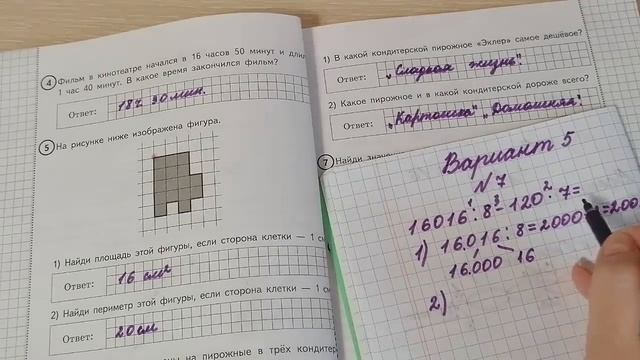 4 Фильм в кинотеатре начался в 16 часов 50 минут и
1 час 40 минут. В какое время закончился фильм?
Ответ: 18ч 30 мин.
5 На рисунке ниже изображена фигура.
1) Найди площадь этой фигуры, если сторона клетки — 1
Ответ: 16 см²
2) Найди периметр этой фигуры, если сторона клетки — 1
Ответ: 20 см
на пирожные в трёх
1) В какой кондитерской пирожное «Эклер» самое дешёвое?
Ответ: „Сладкая жизнь“.
2) Какое пирожное и в какой кондитерской дороже всего?
Ответ: „Картошка“, „Домашняя“
7 Найди
Вариант 5
№7
16016 : 8 − 120 : 7 =
1 3 2
1) 16.016 : 8 = 2000
16.000 16
2)